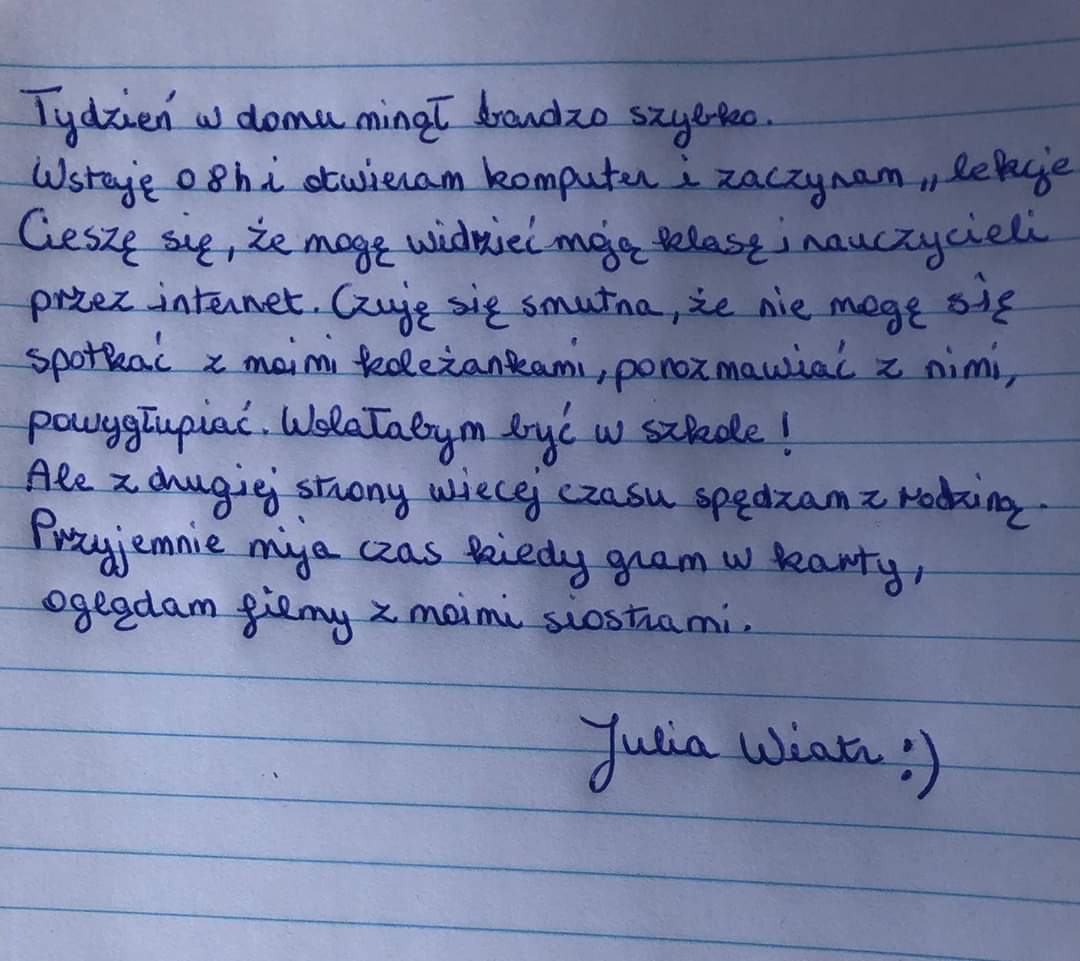 Tydzień w domu minął bardzo szybko.
Wstaję o 8h i otwieram komputer i zaczynam „lekcje
Cieszę się, że mogę widzieć moją klasę i nauczycieli
przez internet. Czuję się smutna, że nie mogę się
spotkać z moimi koleżankami, porozmawiać z nimi,
powygłupiać. Wolałabym być w szkole!
Ale z drugiej strony wiecej czasu spędzam z rodziną.
Przyjemnie mija czas kiedy gram w karty,
oglądam filmy z moimi siostrami.
Julia Wiatr :)